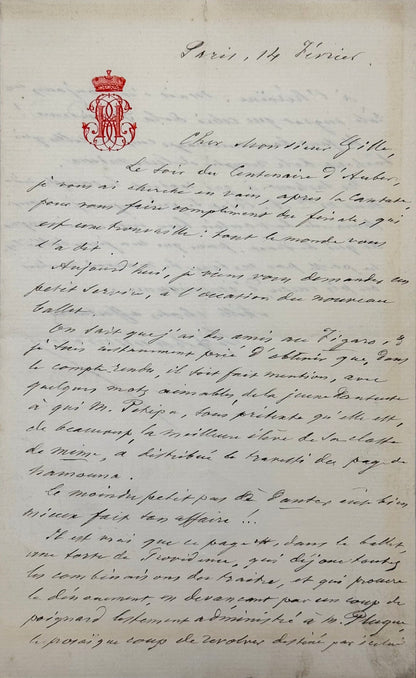 Paris, 14 Février.
Cher Monsieur Gille,
Le soir du Centenaire d'Auber,
je vous ai cherché en vain, après la Cantate,
pour vous faire compliment du finale, qui
est une trouvaille : tout le monde vous
l'a dit.
Aujourd'hui, je viens vous demander un
petit service, à l'occasion du nouveau
ballet.
On sait que j'ai les amis au Figaro, &
je suis instamment prié d'obtenir que, dans
le compte rendu, il soit fait mention, avec
quelques mots aimables, de la jeune
à qui M. Petipa, sous prétexte qu'elle est,
de beaucoup, la meilleure élève de sa classe
de mime, a distribué le travesti du page de
Namouna.
Le moindre petit pas de eut bien
mieux fait son affaire !..
Il est vrai que ce page est, dans le ballet,
une sorte de Providence, qui déjoue toutes
les combinaisons du traître, et qui procure
le dénouement, en devançant par un coup de
poignard lestement administré à M. Pluque
le prosaïque coup de revolver destiné par celui